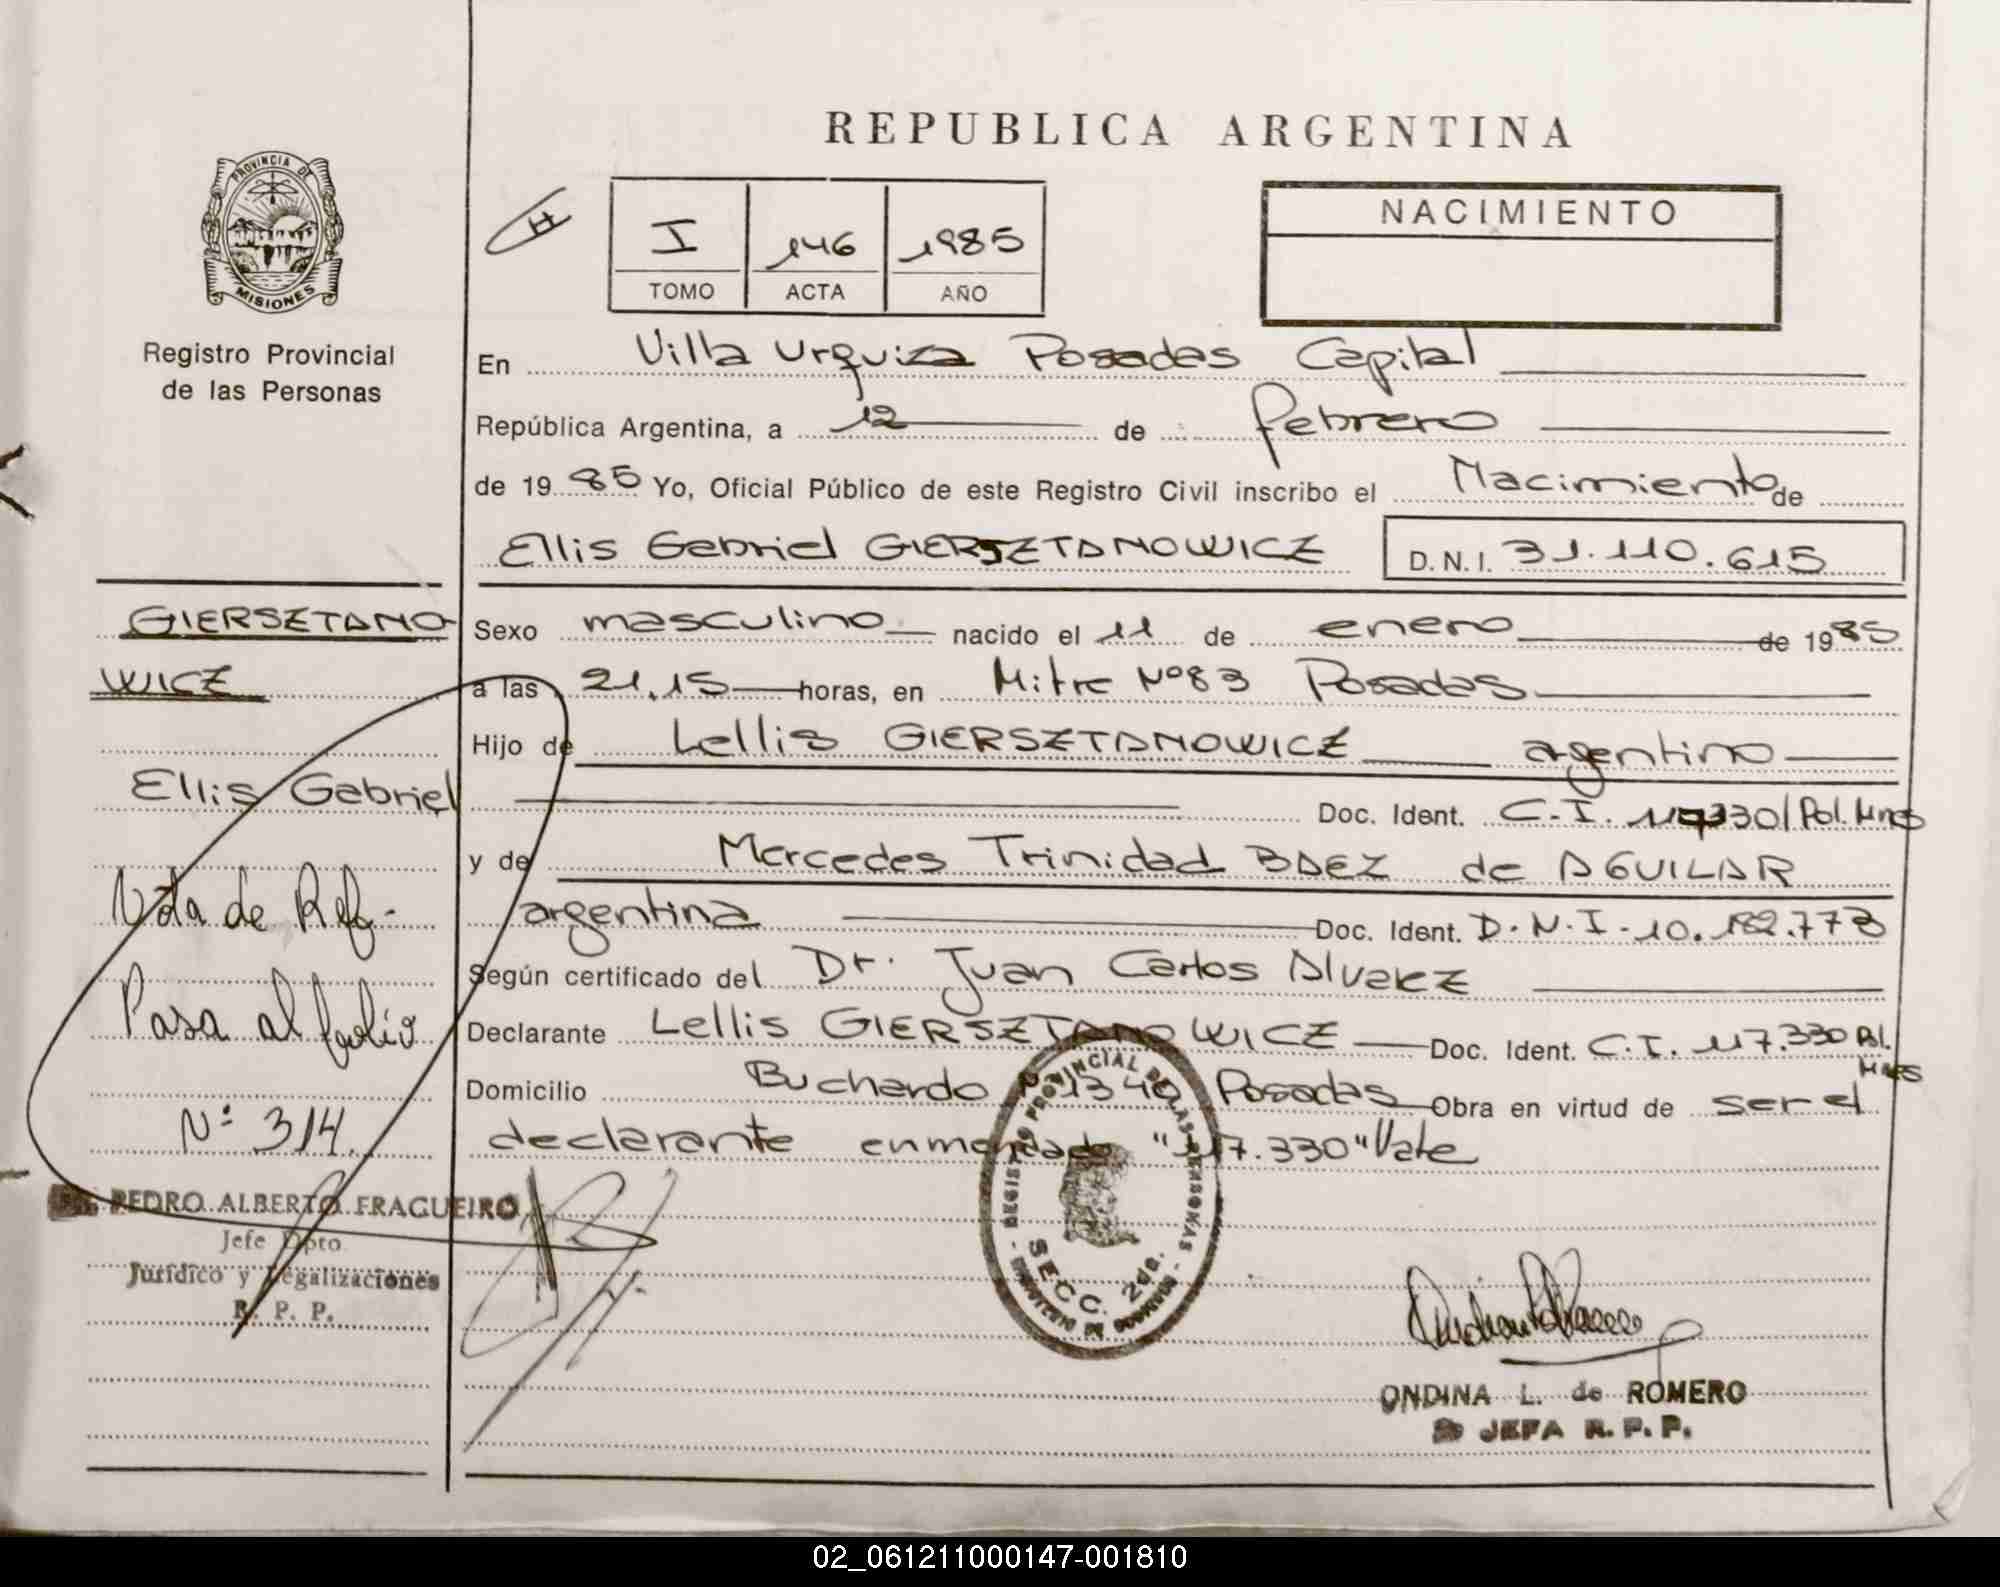 REPUBLICA ARGENTINA
PROVINCIA DE
MISIONES
Registro Provincial
de las Personas
H
I 146 1985
TOMO ACTA AÑO
NACIMIENTO
En Villa Urquiza Posadas Capital
República Argentina, a 12 de febrero
de 1985 Yo, Oficial Público de este Registro Civil inscribo el Nacimiento de
Ellis Gabriel GIERSZTANOWICZ D.N.I. 31.110.615
GIERSZTANO
WICZ
Ellis Gabriel
Nota de Ref-
Pasa al folio
Nº 314
PEDRO ALBERTO FRAGUEIRO
Jefe Dpto
Jurídico y Legalizaciones
R. P. P.
Sexo masculino nacido el 11 de enero de 1985
a las 21.15 horas, en Mitre Nº83 Posadas
Hijo de Lellis GIERSZTANOWICZ argentino
Doc. Ident. C.I. 117330/Pol. Mnes
y de Mercedes Trinidad BAEZ de AGUILAR
argentina Doc. Ident. D.N.I-10.182.773
Según certificado del Dr. Juan Carlos Alvarez
Declarante Lellis GIERSZTANOWICZ Doc. Ident. C.I. 117.330 Pol.
Mnes
Domicilio Buchardo Nº 1340 Posadas Obra en virtud de ser el
declarante enmendado "117.330" Vale
REGISTRO PROVINCIAL DE LAS PERSONAS
SECC. 2da.
MINISTERIO DE GOBIERNO
ONDINA L. de ROMERO
JEFA R. P. P.
02_061211000147-001810